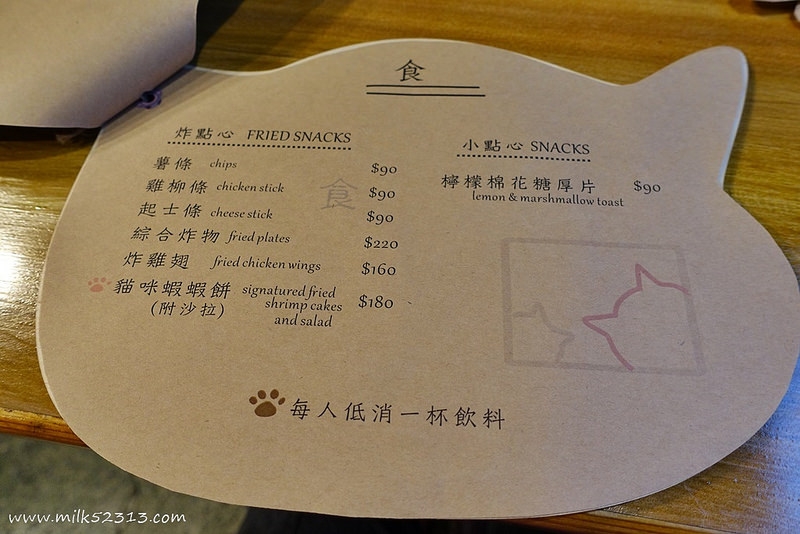 食
炸點心 FRIED SNACKS
薯條 chips $90
雞柳條 chicken stick $90
起士條 cheese stick $90
綜合炸物 fried plates $220
炸雞翅 fried chicken wings $160
貓咪蝦蝦餅 signatured fried $180
(附沙拉) shrimp cakes
and salad
食
小點心 SNACKS
檸檬棉花糖厚片 $90
lemon & marshmallow toast
每人低消一杯飲料
www.milk52313.com